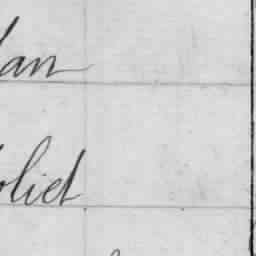 an
oliet